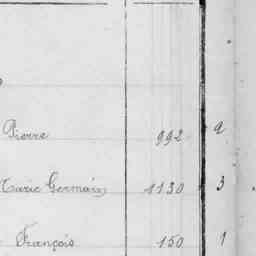 Pierre 992 2
Marie Germain 1130 3
François 150 1